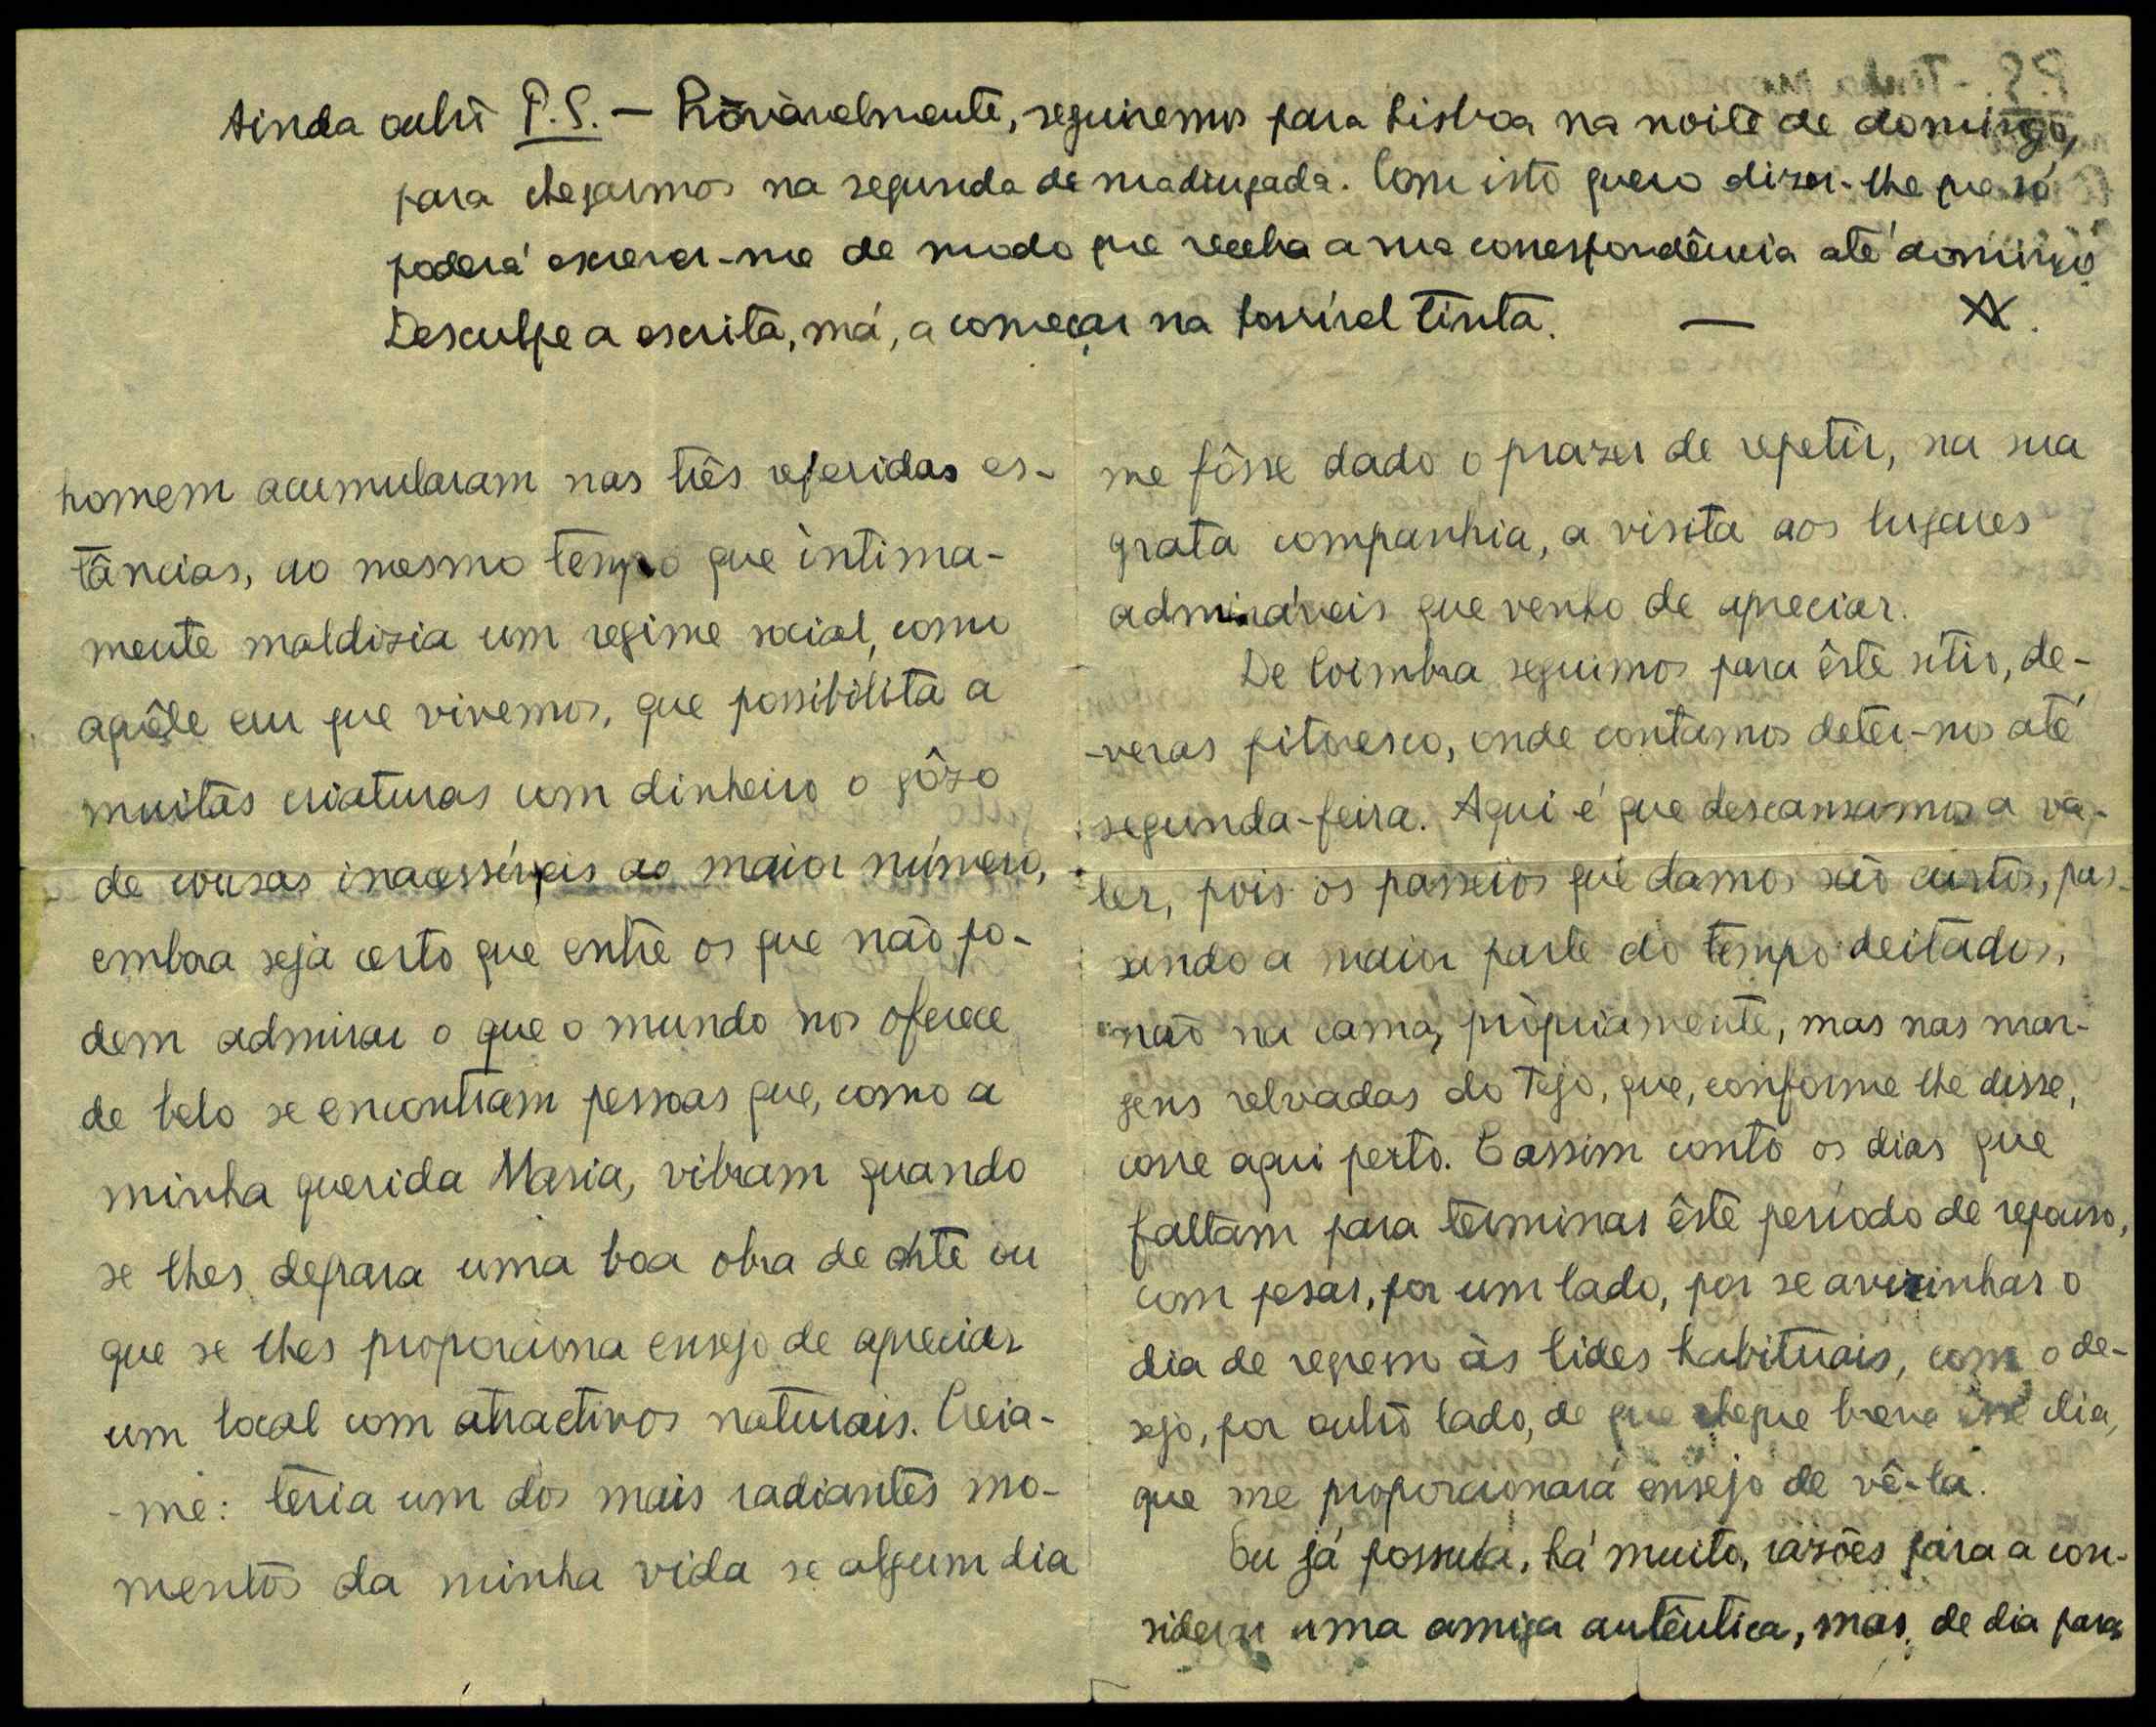 Ainda outro P.S. — Pròvàvelmente, seguiremos para Lisboa na noite de domingo,
para chegarmos na segunda de madrugada. Com isto quero dizer-lhe que só
poderá escrever-me de modo que receba a sua correspondência até domingo.
Desculpe a escrita, má, a começar na horrível tinta. —
homem acumularam nas três referidas es-
tâncias, ao mesmo tempo que ìntima-
mente maldizia um regime social, como
aquêle em que vivemos, que possibilita a
muitas criaturas com dinheiro o gôzo
de cousas inacessíveis ao maior número,
embora seja certo que entre os que não po-
dem admirar o que o mundo nos oferece
de belo se encontram pessoas que, como a
minha querida Maria, vibram quando
se lhes depara uma boa obra de arte ou
que se lhes proporciona ensejo de apreciar
um local com atractivos naturais. Creia-
-me: teria um dos mais radiantes mo-
mentos da minha vida se algum dia
me fôsse dado o prazer de repetir, na sua
grata companhia, a visita aos lugares
admiráveis que venho de apreciar.
De Coimbra seguimos para êste sítio, de-
-veras pitoresco, onde contamos deter-nos até
segunda-feira. Aqui é que descansamos a va-
ler, pois os passeios que damos são curtos, pas-
sando a maior parte do tempo deitados,
não na cama, pròpriamente, mas nas mar-
gens relvadas do Tejo, que, conforme lhe disse,
corre aqui perto. E assim conto os dias que
faltam para terminar êste período de repouso,
com pesar, por um lado, por se avizinhar o
dia de regresso às lides habituais, com o de-
sejo, por outro lado, de que chegue breve êsse dia,
que me proporcionará ensejo de vê-la.
Eu já possuía, há muito, razões para a con-
siderar uma amiga autêntica, mas, de dia para